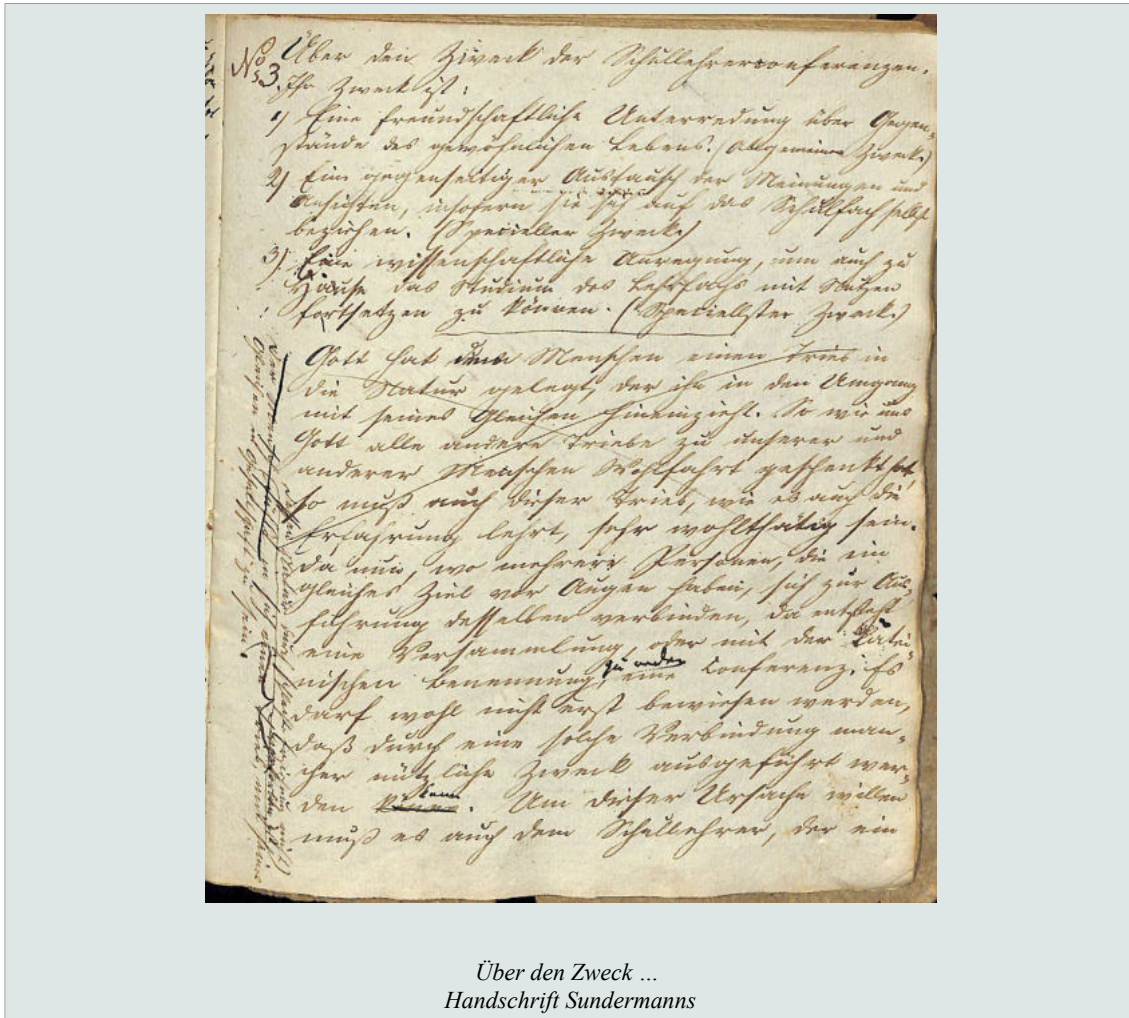 No 3.
Über den Zweck der Schullehrerconferenzen.
Ihr Zweck ist:
1) Eine freundschaftliche Unterredung über Gegen-
stände des gewöhnlichen Lebens. (Allgemeiner Zweck.)
2) Ein gegenseitiger Austausch der Meinungen und
Ansichten, insofern sie sich auf das Schulfach selbst
beziehen. (Specieller Zweck.)
3) Eine wissenschaftliche Anregung, um auch zu
Hause das Studium des Lehrfachs mit Nutzen
fortsetzen zu können. (Speciellster Zweck.)
Gott hat dem Menschen einen Trieb in
die Natur gelegt, der ihn in den Umgang
mit seines Gleichen hineinzieht. So wie uns
Gott alle andere Triebe zu unserer und
anderer Menschen Wohlfahrt geschenkt hat,
so muß auch dieser Trieb, wie es auch die
Erfahrung lehrt, sehr wohlthätig sein.
Da nun, wo mehrere Personen, die ein
gleiches Ziel vor Augen haben, sich zur Aus-
führung desselben verbinden, da entsteht
eine Versammlung, oder mit der Latei-
nischen Benennung, eine Conferenz. Es
darf wohl nicht erst bewiesen werden,
daß durch eine solche Verbindung man-
cher nützliche Zweck ausgeführt wer-
den kann. Um dieser Ursache willen
muß es auch dem Schullehrer, der ein
Der Mensch
Gleichen in Gesellschaft zu sein.
Über den Zweck …
Handschrift Sundermanns